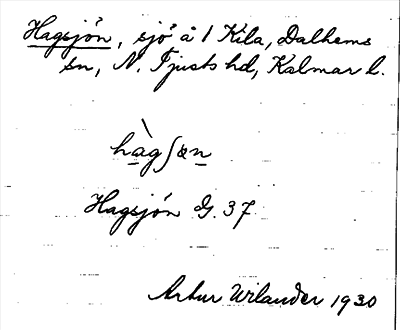 Hagsjön, sjö å 1 Kila, Dalhems
sn, N. Tjusts hd, Kalmar l.
hàgʃæn
Hagsjön G. 37
Artur Wilander 1930